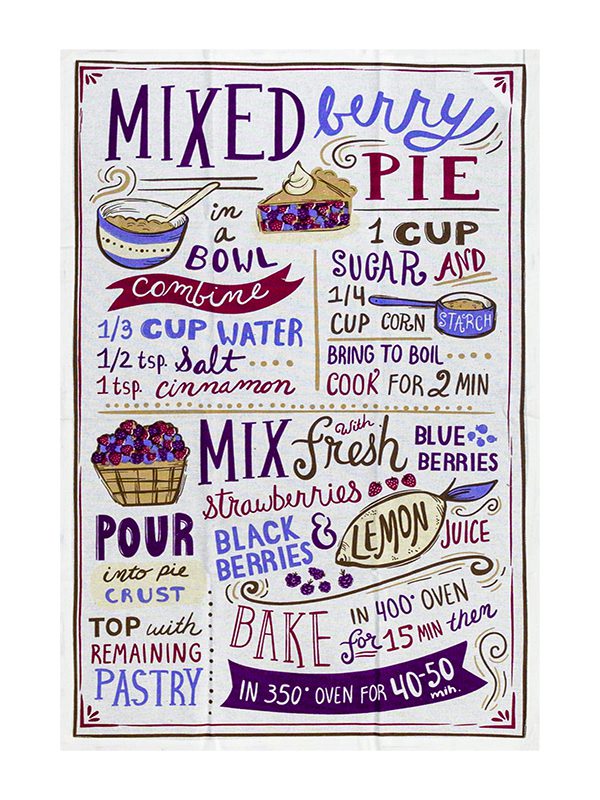 MIXED berry
PIE
in
a
BOWL
combine
1/3 CUP WATER
1/2 tsp. Salt
1 tsp. cinnamon
1 CUP
SUGAR AND
1/4
CUP CORN STARCH
BRING TO BOIL
COOK FOR 2 MIN
MIX With fresh BLUE
BERRIES
strawberries
BLACK
BERRIES & LEMON JUICE
POUR
into pie
CRUST
TOP with
REMAINING
PASTRY
BAKE IN 400° OVEN
for 15 MIN then
IN 350° OVEN FOR 40-50
min.